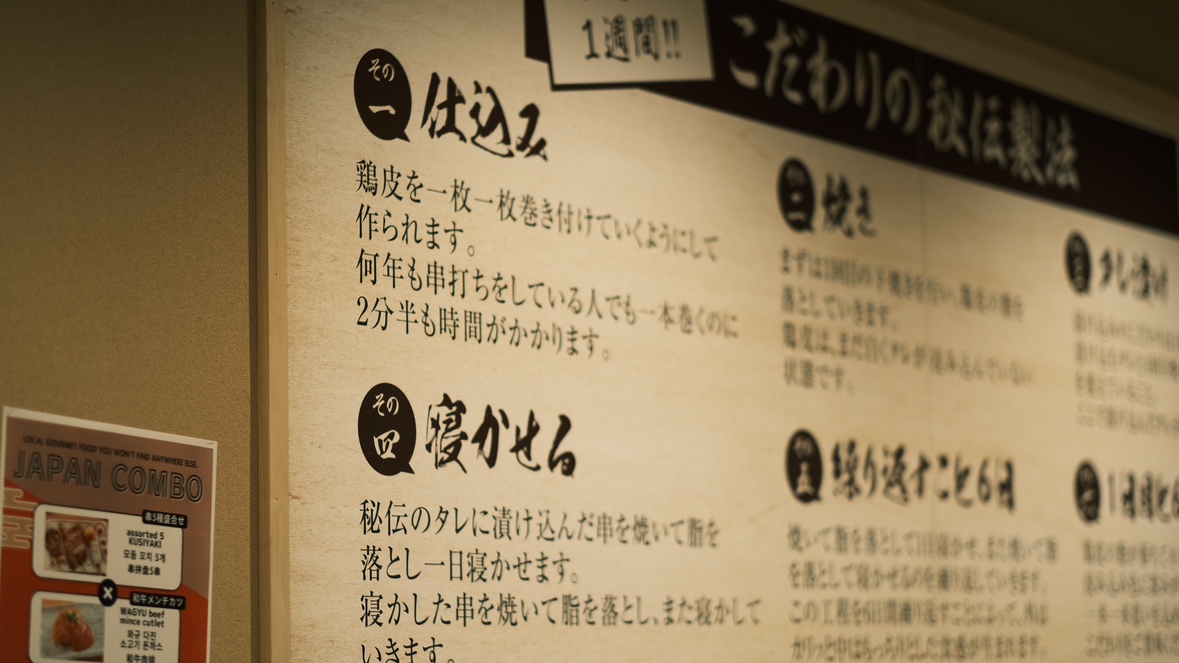 1週間!!
こだわりの秘伝製法
その
一
仕込み
鶏皮を一枚一枚巻き付けていくようにして
作られます。
何年も串打ちをしている人でも一本巻くのに
2分半も時間がかかります。
その
二
焼き
まずは1回目の下焼きを行い、鶏皮の脂を
落としていきます。
鶏皮は、まだ白くタレが染み込んでいない
状態です。
タレ漬け
その
四
寝かせる
秘伝のタレに漬け込んだ串を焼いて脂を
落とし一日寝かせます。
寝かした串を焼いて脂を落とし、また寝かして
いきます。
五
繰り返すこと6日
焼いて脂を落として1日寝かせ、また焼いて脂
を落として寝かせるのを繰り返していきます。
この工程を6日間繰り返すことによって、外は
カリッと中はもっちりとした食感が生まれます。
LOCAL GOURMET FOOD YOU WON'T FIND ANYWHERE ELSE.
JAPAN COMBO
串5種盛合せ
assorted 5
KUSIYAKI
모듬 꼬치 5개
串拼盘5串
和牛メンチカツ
WAGYU beef
mince cutlet
와규 다진
소고기 돈까스
和牛肉排